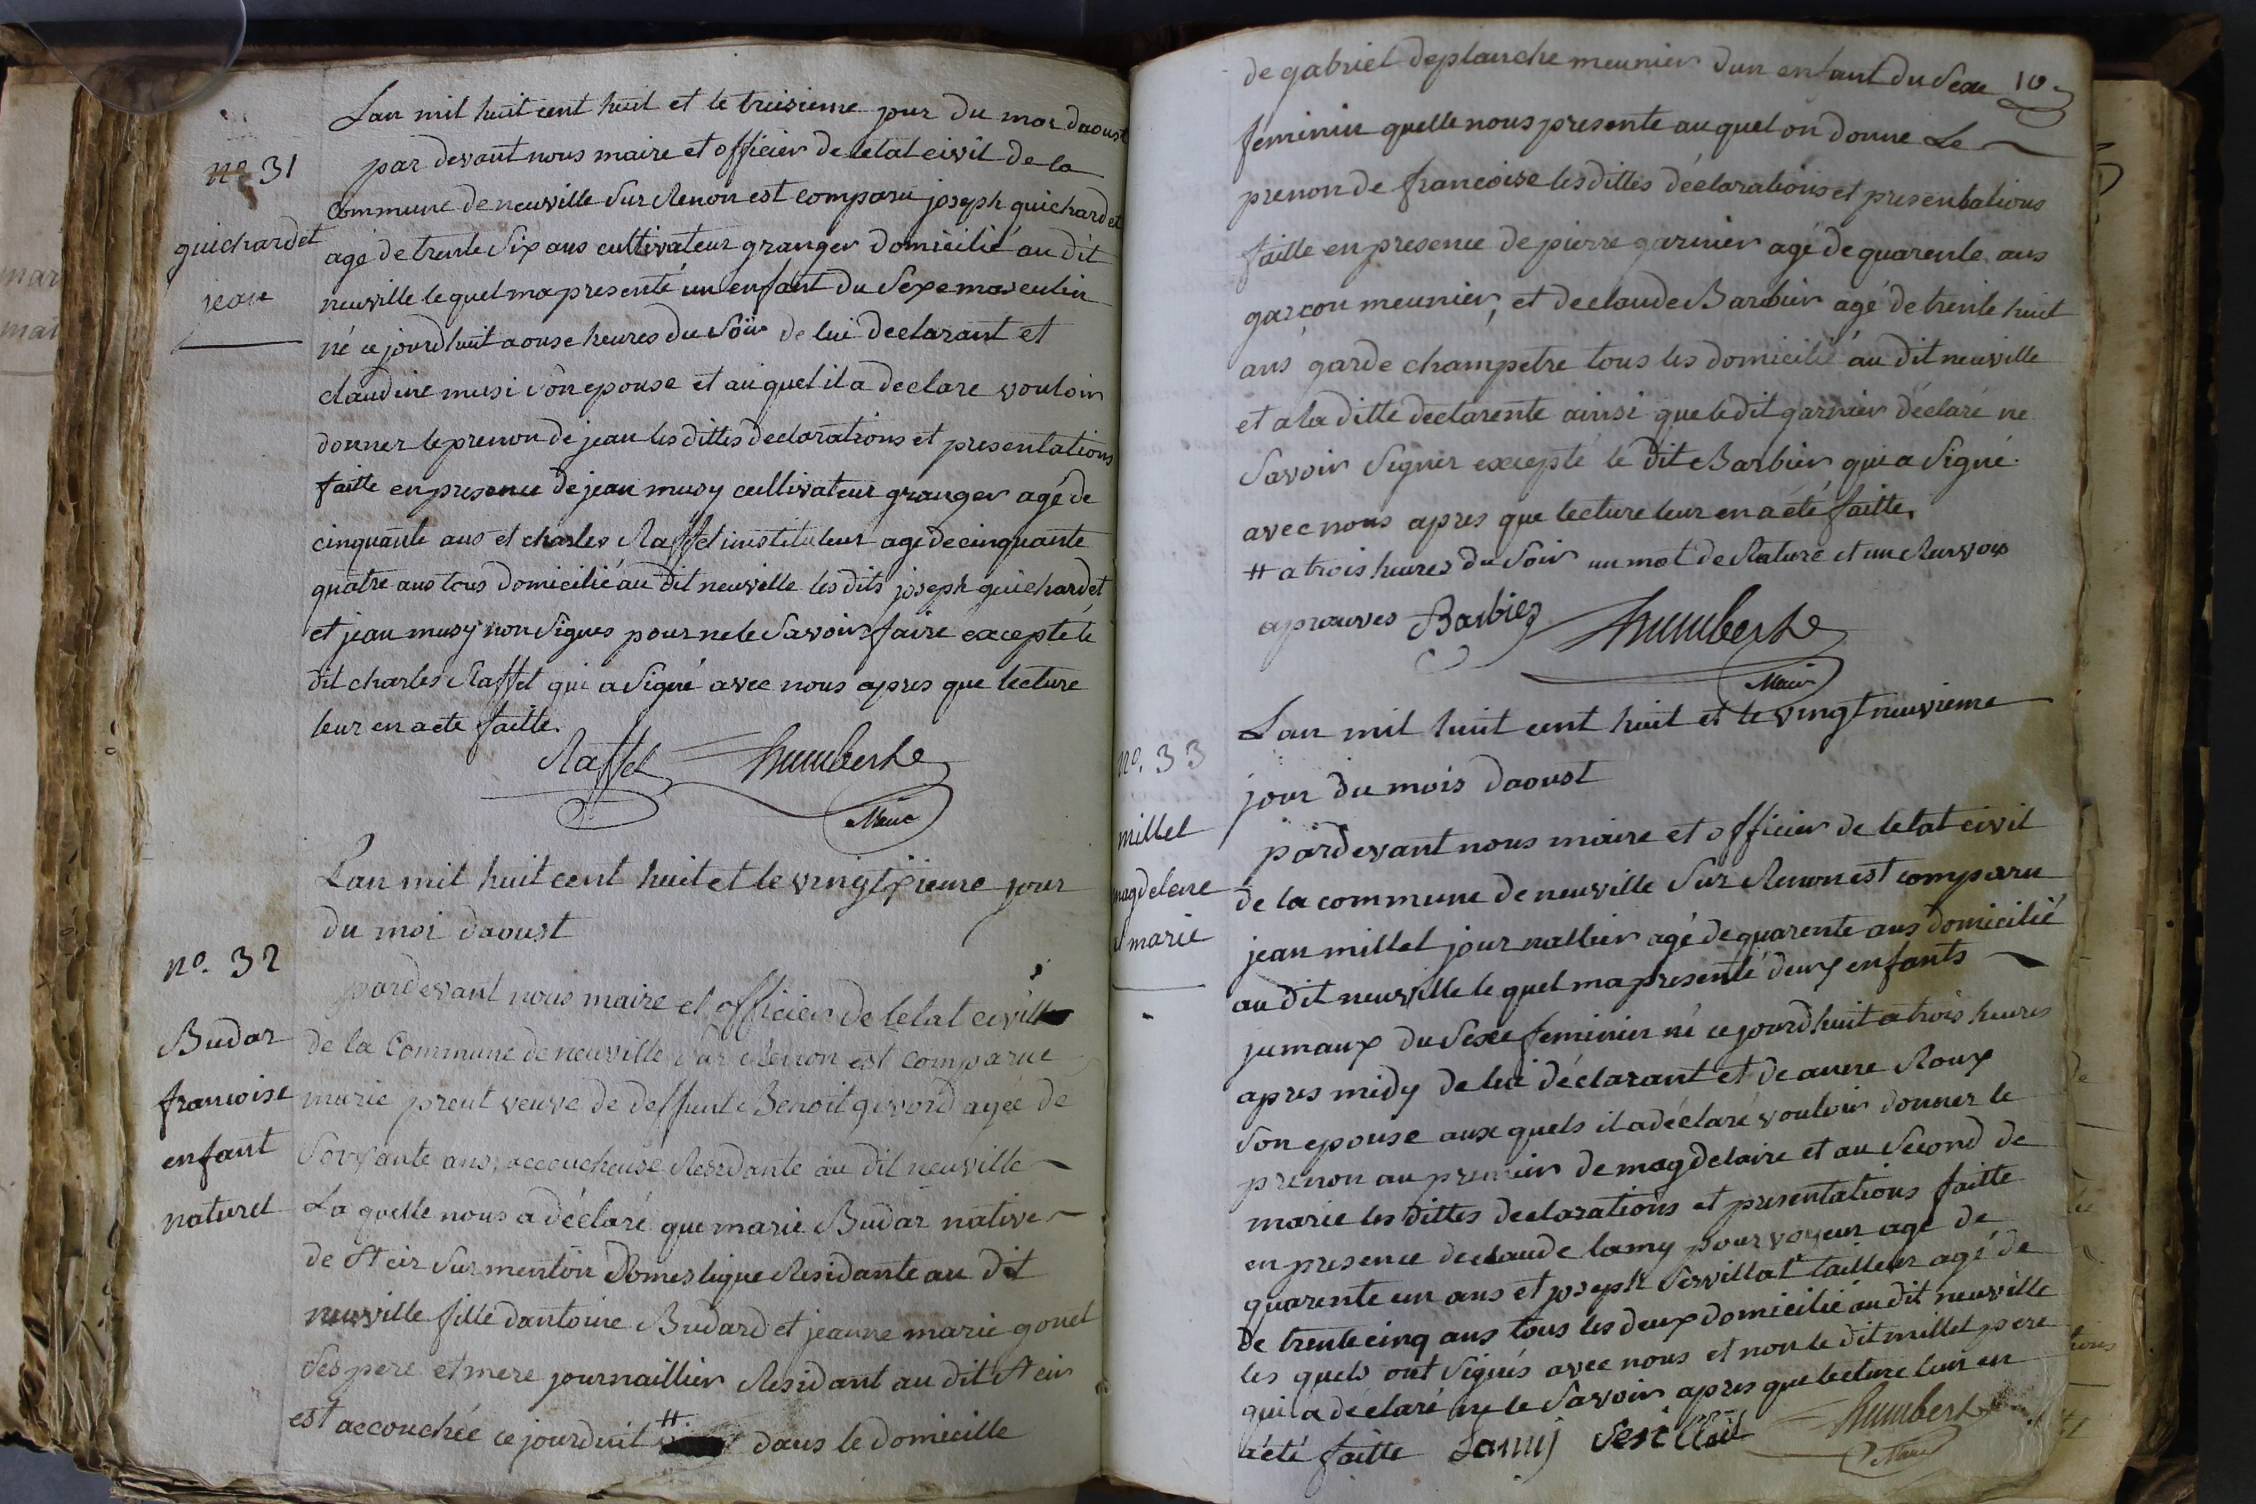 Lan mil huit cent huit et le troisieme jour du moi daoust
par devant nous maire et officier de letat civil de la
Commune de neuville Sur Renon est comparu joseph guichardet
agé de trente Six ans cultivateur granger domicilié au dit
neuville lequel ma presenté un enfant du Sexe masculin
né ce jourdhuit a onse heures du Soir de lui declarant et
claudine musi Son epouse et au quel il a declare vouloir
donner le prenon de jean les dittes declarations et presentations
faitte en presence de jean musy cultivateur granger agé de
cinquante ans et charles Raffet instituteur age de cinquante
quatre ans tous domicilié au dit neuville les dits joseph guichardet
et jean musy non Signes pour ne le Savoir faire excepté le
dit charles Raffet qui a Signé avec nous apres que lecture
leur en a ete faitte.
Raffet humbert
Maire
no 31
guichardet
jean
Lan mil huit cent huit et le vingt
jour
du moi daoust
pardevant nous maire et officier de letat civill
de la Commune de neuville Sur Renon est comparue
marie preut veuve de deffunt Benoit gevord agée de
Soixante ans, accoucheuse Residante au dit neuville
La quelle nous a déclaré que marie Budar native
de St cir Sur menton Domestique Residante au dit
neuville fille dantoine Budard et jeanne marie gonet
Ses pere et mere journaillier Residant au dit St cir
est accouchée ce jourduit # dans le domicille
no. 32
Budar
francoise
enfant
naturel
10
de gabriel deplanche meunier dun enfant du Sexe
feminin quelle nous presente au quel on donne Le
prenon de francoise les dittes déclarations et presentations
faitte en presence de pierre garnier agé de quarente ans
garcon meunier, et de claude Barbier agé de trente huit
ans garde champetre tous les domicilié au dit neuville
et a la ditte declarente ainsi que le dit garnier déclaré ne
Savoir Signer excepté le dit Barbier qui a Signé
avec nous apres que lecture leur en a eté faitte.
# a trois heures du Soir un mot de Rature et un Renvoy
aprouves Barbier humbert
Maire
Lan mil huit cent huit et le vingt neuvieme
jour du mois daoust
pardevant nous maire et officier de letat civil
de la commune de neuville Sur Renon est comparu
jean millet journallier agé de quarente ans domicilié
au dit neuville le quel ma presenté deux enfants
jumaux du Sexe feminin né ce jourdhuit a trois heures
apres midy de lui déclarant et de anne Roux
Son epouse aux quels il a déclaré vouloir donner le
prenon au premier de magdelaine et au Second de
marie les dittes declarations et presentations faitte
en presence de claude lamy pourvoyeur agé de
quarente un ans et joseph Servillat tailleur agé de
de trente cinq ans tous les deux domicilié au dit neuville
les quels ont Signés avec nous et non le dit millet pere
qui a déclaré ne le Savoir apres que lecture leur en
a été faitte Lamy humbert
Maire
no. 33
millet
magdelene
et marie